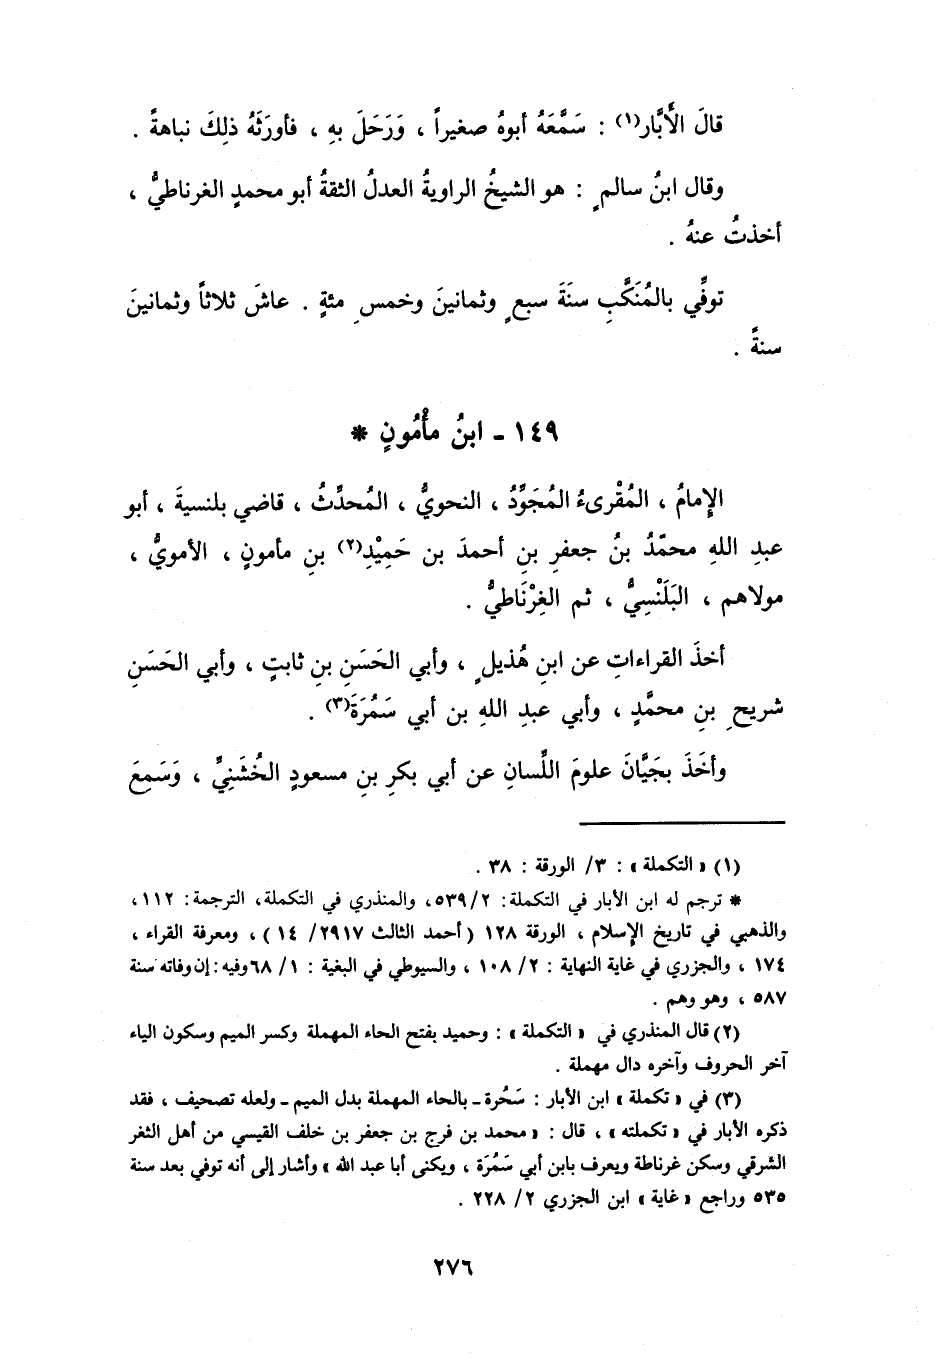 قالَ الأَبَّار(١) : سَمَّعَهُ أبوهُ صغيراً ، وَرَحَلَ بهِ ، فأورَثَهُ ذلِكَ نباهةً .
وقال ابنُ سالمٍ : هو الشيخُ الراويةُ العدلُ الثقةُ أبو محمدٍ الغرناطيُّ ،
أخذتُ عنهُ .
توفِّي بالمُنَكَّبِ سنَةَ سبعٍ وثمانينَ وخمسِ مئةٍ . عاشَ ثلاثاً وثمانينَ
سنةً .
١٤٩ - ابنُ مأْمُونٍ *
الإِمامُ ، المُقْرىءُ المُجَوِّدُ ، النحويُّ ، المُحدِّثُ ، قاضي بلنسيةَ ، أبو
عبدِ اللهِ محمّدُ بنُ جعفرِ بنِ أحمدَ بن حَمِيْدِ(٢) بنِ مأمونٍ ، الأمويُّ ،
مولاهم ، البَلَنْسِيُّ ، ثم الغِرْنَاطيُّ .
أخذَ القراءاتِ عن ابنِ هُذيلٍ ، وأبي الحَسَنِ بنِ ثابتٍ ، وأبي الحَسَنِ
شريحِ بنِ محمَّدٍ ، وأبي عبدِ اللهِ بن أبي سَمُرَةَ(٣) .
وأخَذَ بجَيَّانَ علومَ اللِّسانِ عن أبي بكرِ بنِ مسعودٍ الخُشَنِيِّ ، وَسَمِعَ
(١) « التكملة » : ٣/ الورقة : ٣٨ .
* ترجم له ابن الأبار في التكملة : ٢/ ٥٣٩، والمنذري في التكملة، الترجمة : ١١٢ ،
والذهبي في تاريخ الإسلام ، الورقة ١٢٨ ( أحمد الثالث ٢٩١٧/ ١٤ ) ، ومعرفة القراء ،
١٧٤ ، والجزري في غاية النهاية : ٢/ ١٠٨ ، والسيوطي في البغية : ١/ ٦٨ وفيه : إن وفاته سنة
٥٨٧ ، وهو وهم .
(٢) قال المنذري في « التكملة » : وحميد بفتح الحاء المهملة وكسر الميم وسكون الياء
آخر الحروف وآخره دال مهملة .
(٣) في « تكملة » ابن الأبار : سَحُرة - بالحاء المهملة بدل الميم - ولعله تصحيف ، فقد
ذكره الأبار في « تكملته » ، قال : « محمد بن فرج بن جعفر بن خلف القيسي من أهل الثغر
الشرقي وسكن غرناطة ويعرف بابن أبي سَمُرَة ، ويكنى أبا عبد الله » وأشار إلى أنه توفي بعد سنة
٥٣٥ وراجع « غاية » ابن الجزري ٢/ ٢٢٨ .
٢٧٦